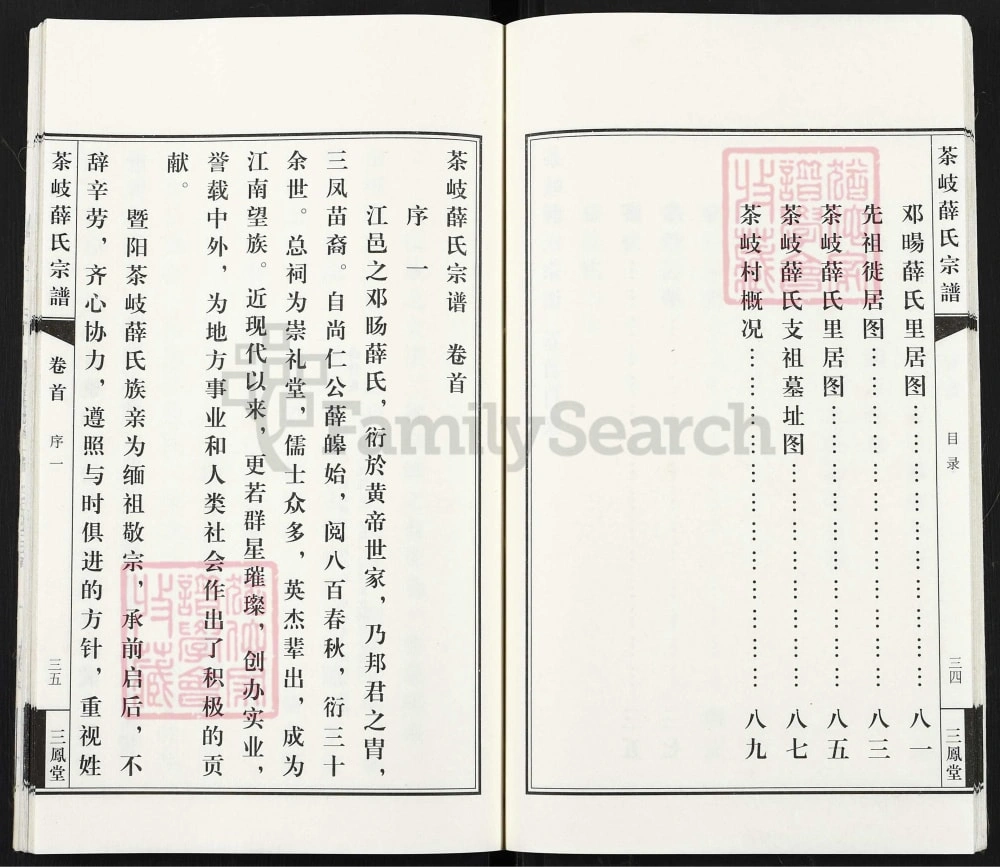 茶岐薛氏宗譜
目录
三四
三鳳堂
邓暘薛氏里居图……………………………八一
先祖徙居图……………………………八三
茶岐薛氏里居图……………………………八五
茶岐薛氏支祖墓址图……………………………八七
茶岐村概况……………………………八九
茶岐薛氏宗谱 卷首
序一
江邑之邓旸薛氏，衍於黄帝世家，乃邦君之胄，
三凤苗裔。自尚仁公薛皞始，阅八百春秋，衍三十
余世。总祠为崇礼堂，儒士众多，英杰辈出，成为
江南望族。近现代以来，更若群星璀璨，创办实业，
誉载中外，为地方事业和人类社会作出了积极的贡
献。
暨阳茶岐薛氏族亲为缅祖敬宗，承前启后，不
辞辛劳，齐心协力，遵照与时俱进的方针，重视姓
茶岐薛氏宗譜
卷首
序一
三五
三鳳堂
FamilySearch